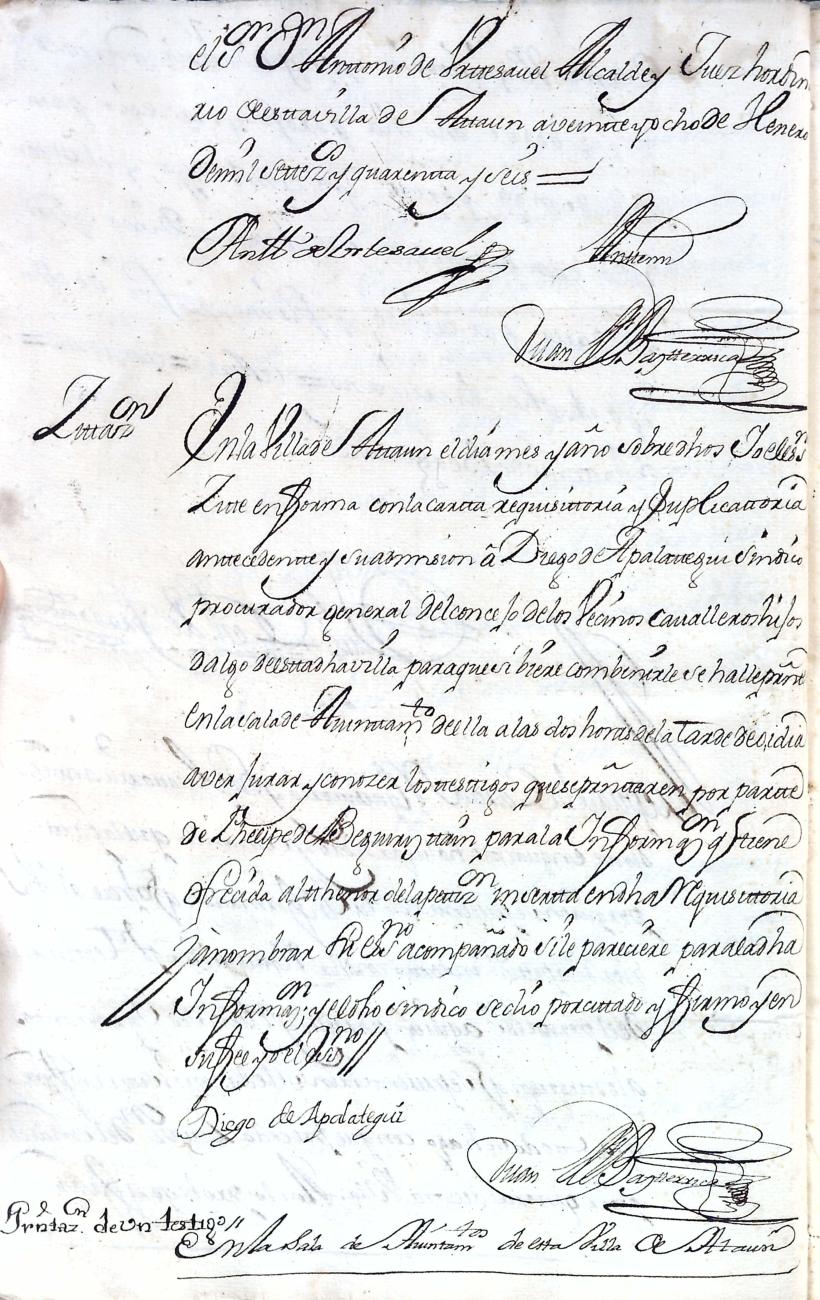 el Sr Dn Anttonio de Urttesauel Alcalde y Juez hordina
rio de estta villa de Attaun a veintte y ocho de Henero
de mil settezos y quarentta y seis =
Antto de Urtesauel
Antemi
Juan Bapterrica
Zittazon
En la Villa de Attaun el dia mes y año sobre dhos Yo el essno
Zitte en forma con la cartta requisittoria y suplicattoria
anttecedentte y su admision â Diego de Apalattegui sindico
procurador general del concejo de los Vecinos cavalleros hijos
dalgo de estta dha villa para que si biere combenirle se halle prñte
en la sala de Ayunttamto de ella a las dos horas de la tarde de oi dia
a ver jurar y conozer los testtigos que se prñttaren por partte
de Phelipe de Beguiristtain para la Informazon q tiene
ofrecida al tthenor de la pettizon insertta en dha Requisittoria
y â nombrar essno acompañado si le pareciere para la dha
Informazon; y el dho sindico se dio por cittado y firmo y en
su fee yo el essno //
Diego de Apalategui
Juan Bapterrica
Prñtazon de un testigo //
En la Sala de Aiuntamtos de esta Villa de Ataun